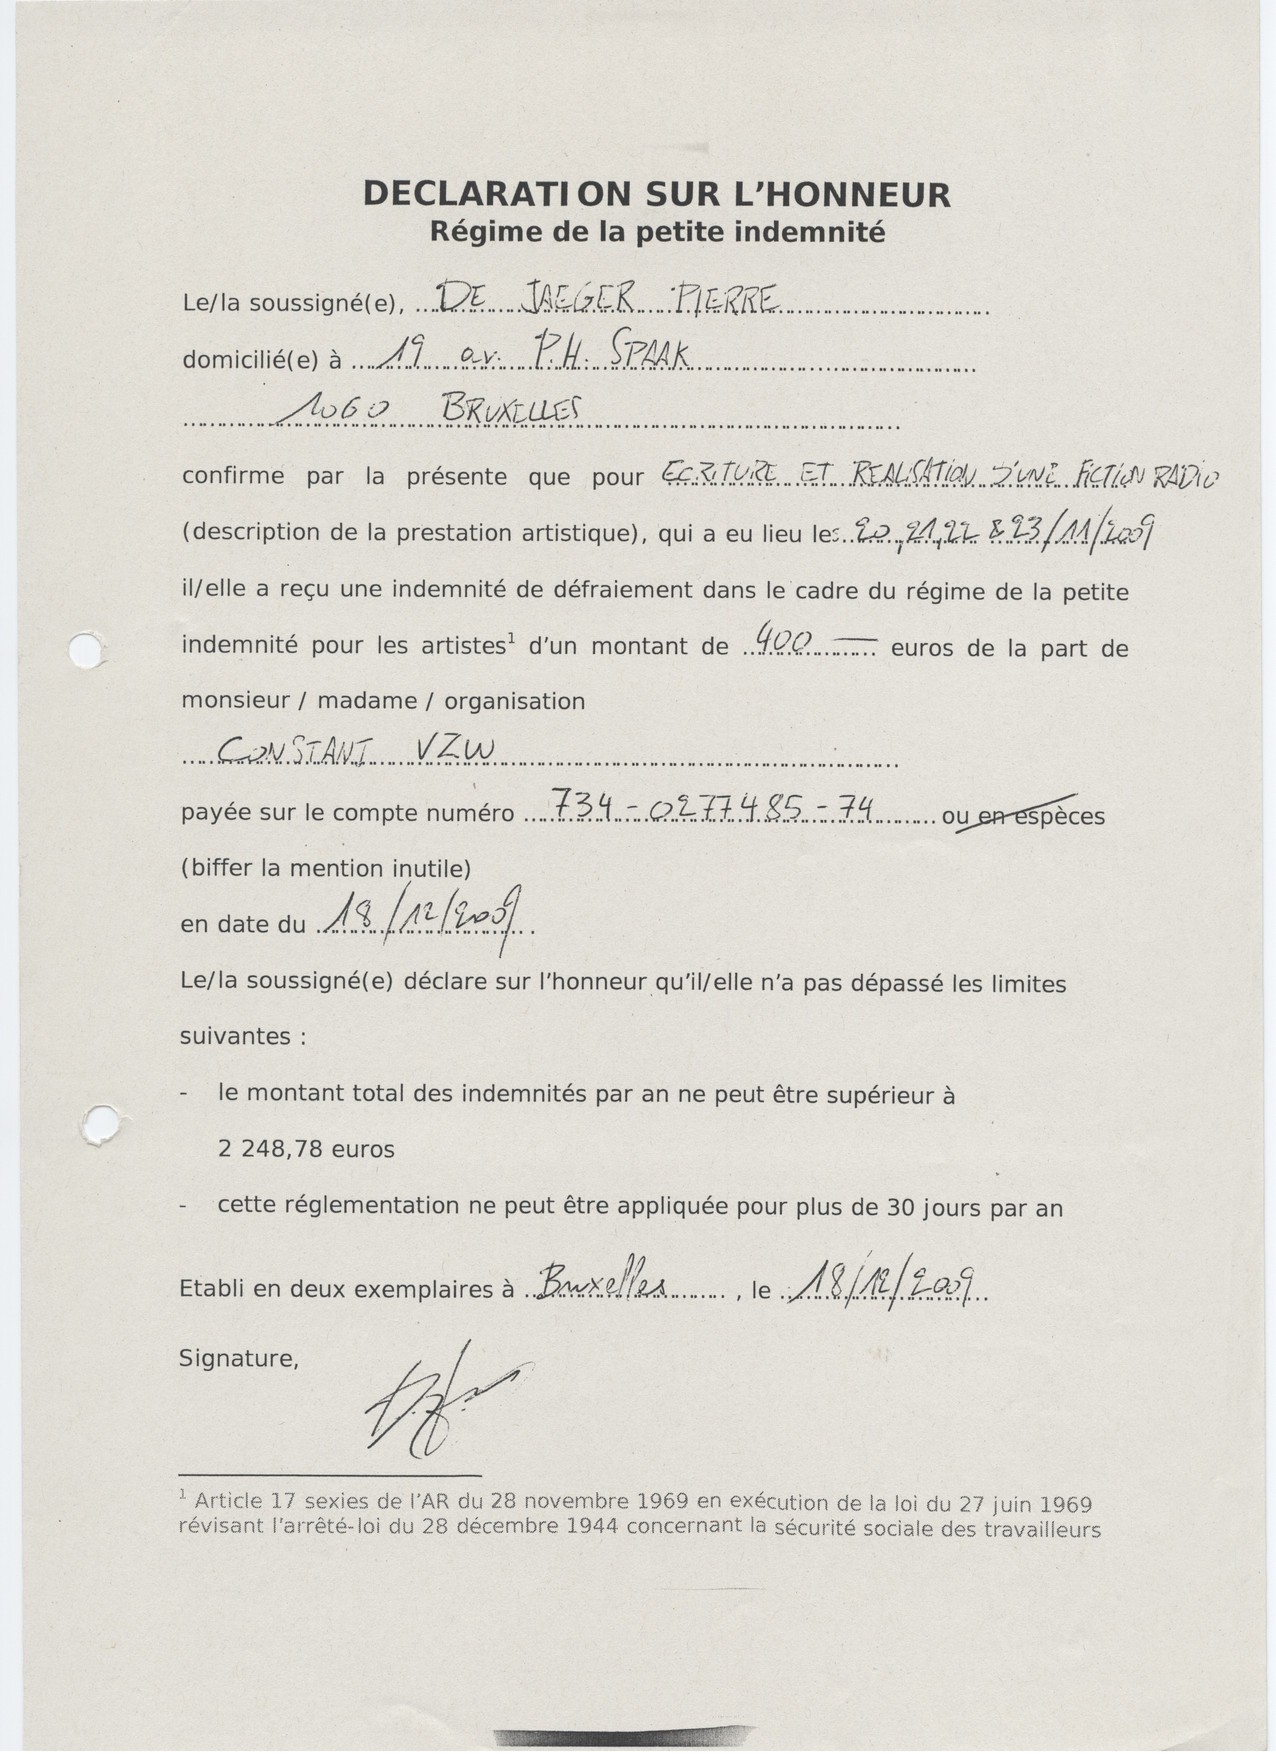 DECLARATION SUR L'HONNEUR
Régime de la petite indemnité
Le/la soussigné(e), DE JAEGER PIERRE
domicilié(e) à 19 av. P.H. SPAAK
1060 BRUXELLES
confirme par la présente que pour ECRITURE ET REALISATION D'UNE FICTION RADIO
(description de la prestation artistique), qui a eu lieu les 20, 21, 22 & 23/11/2009
il/elle a reçu une indemnité de défraiement dans le cadre du régime de la petite
indemnité pour les artistes¹ d'un montant de 400 — euros de la part de
monsieur / madame / organisation
CONSTANT VZW
payée sur le compte numéro 734-0277485-74 ou en espèces
(biffer la mention inutile)
en date du 18/12/2009
Le/la soussigné(e) déclare sur l'honneur qu'il/elle n'a pas dépassé les limites
suivantes :
- le montant total des indemnités par an ne peut être supérieur à
2 248,78 euros
- cette réglementation ne peut être appliquée pour plus de 30 jours par an
Etabli en deux exemplaires à Bruxelles, le 18/12/2009
Signature,
¹ Article 17 sexies de l'AR du 28 novembre 1969 en exécution de la loi du 27 juin 1969
révisant l'arrêté-loi du 28 décembre 1944 concernant la sécurité sociale des travailleurs